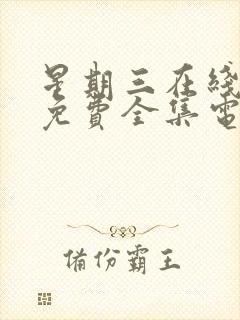 星期三在綫
免費全集電
備份霸王